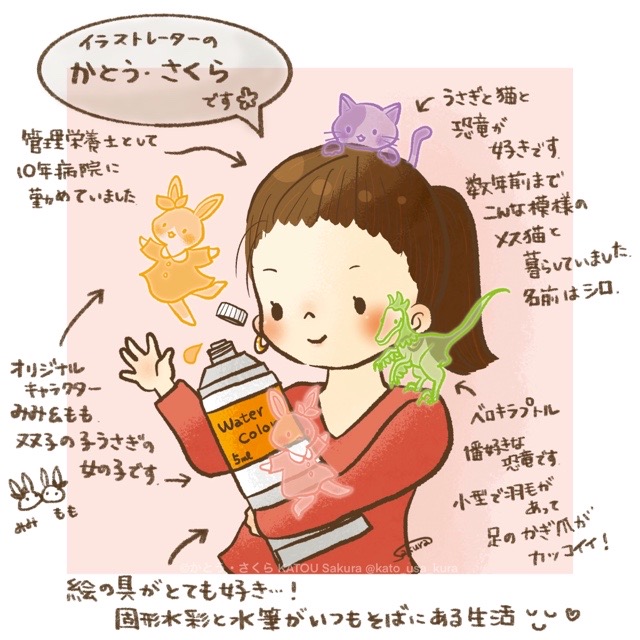 イラストレーターの
かとう・さくら
です
管理栄養士として
10年病院に
勤めていました
うさぎと猫と
恐竜が
好きです
数年前まで
こんな模様の
メス猫と
暮らしていました
名前はシロ.
オリジナル
キャラクター
みみ&もも
双子の子うさぎの
女の子です.
みみ もも
Water
Color
5ml
ベロキラプトル
1番好きな
恐竜です
小型で羽毛が
あって
足のかぎ爪が
カッコイイ!
Sakura
かとう・さくら KATOU Sakura @kato_usa_kura
絵の具がとても好き…!
固形水彩と水筆がいつもそばにある生活